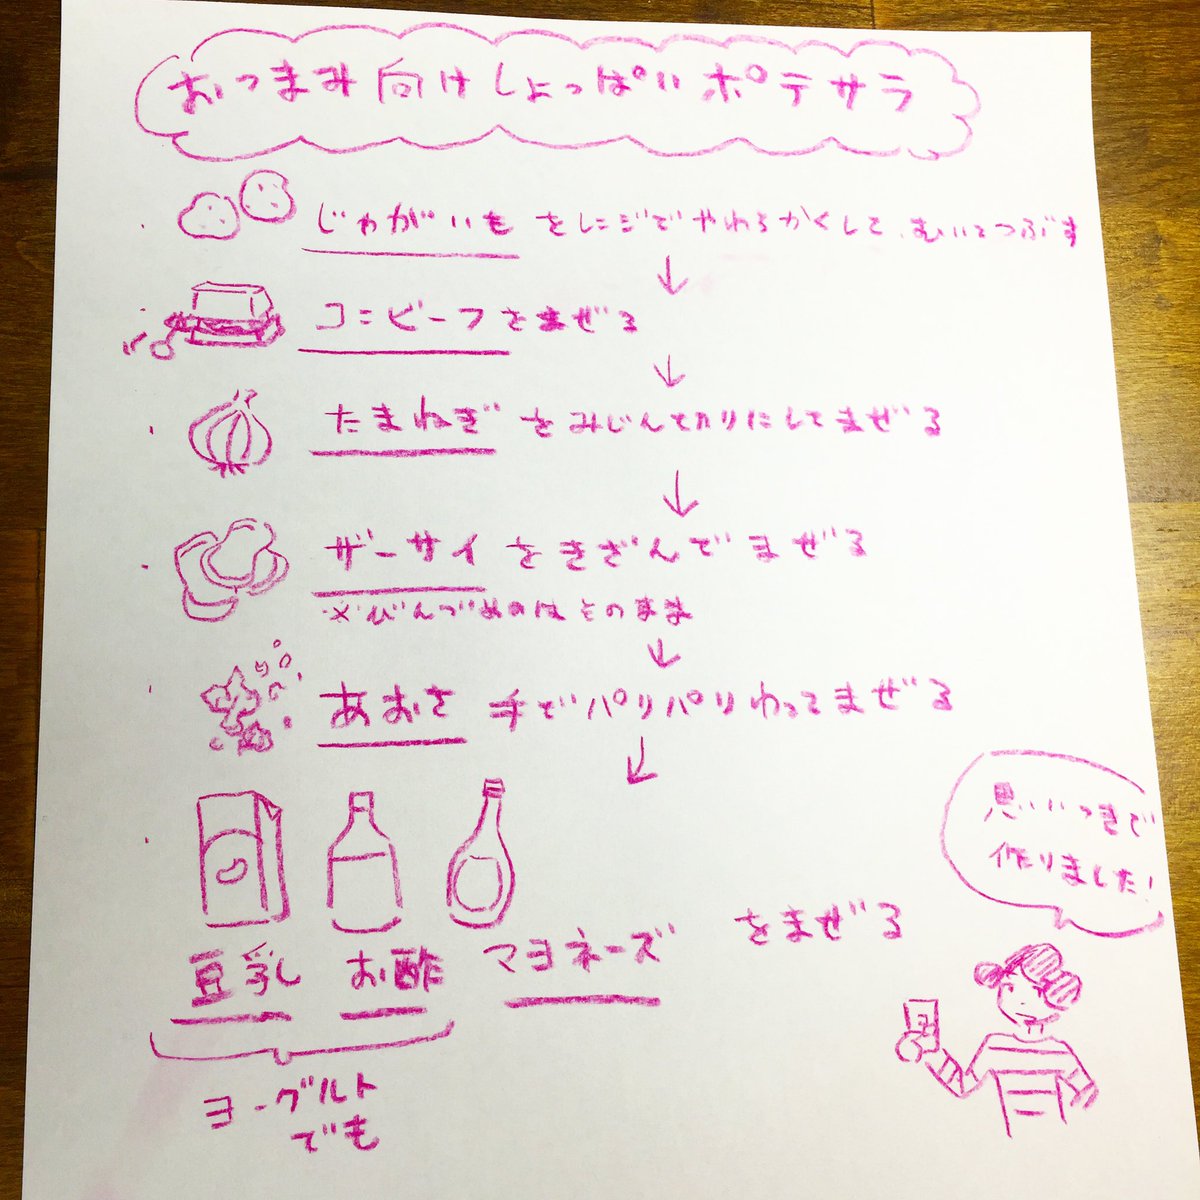 おつまみ向けしょっぱいポテサラ
・じゃがいもをレンジでやわらかくして、むいてつぶす
↓
・コンビーフをまぜる
↓
・たまねぎをみじん切りにしてまぜる
↓
・ザーサイをきざんでまぜる
※びんづめのはそのまま
↓
・あおさ 手でパリパリわってまぜる
↓
・豆乳 お酢 マヨネーズ をまぜる
ヨーグルト
でも
思いつきで
作りました!